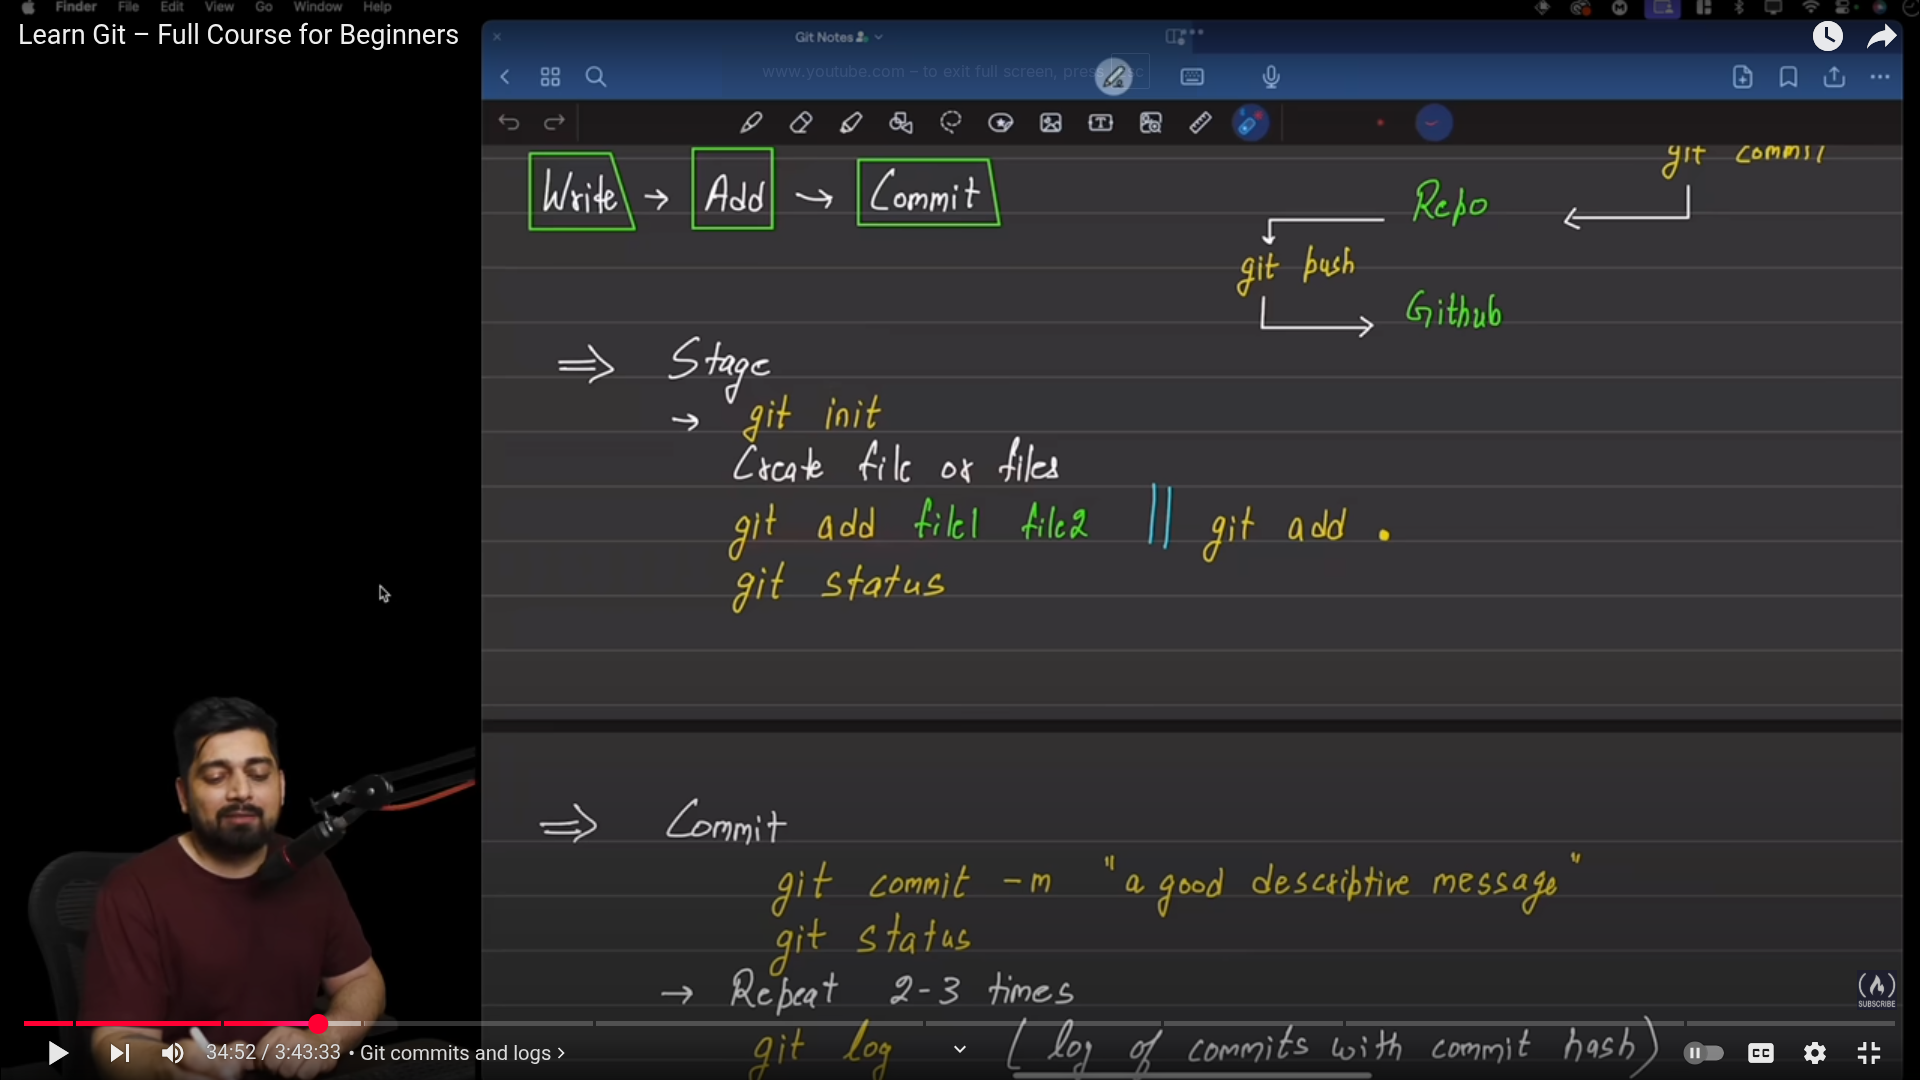 Finder File Edit View Go Window Help
Learn Git – Full Course for Beginners
Git Notes
www.youtube.com – to exit full screen, press Esc
Write → Add → Commit
git commit
Repo
git push
Github
⇒ Stage
→ git init
Create file or files
git add file1 file2 || git add .
git status
⇒ Commit
git commit -m "a good descriptive message"
git status
→ Repeat 2-3 times
git log ( log of commits with commit hash)
SUBSCRIBE
34:52 / 3:43:33 • Git commits and logs >
CC